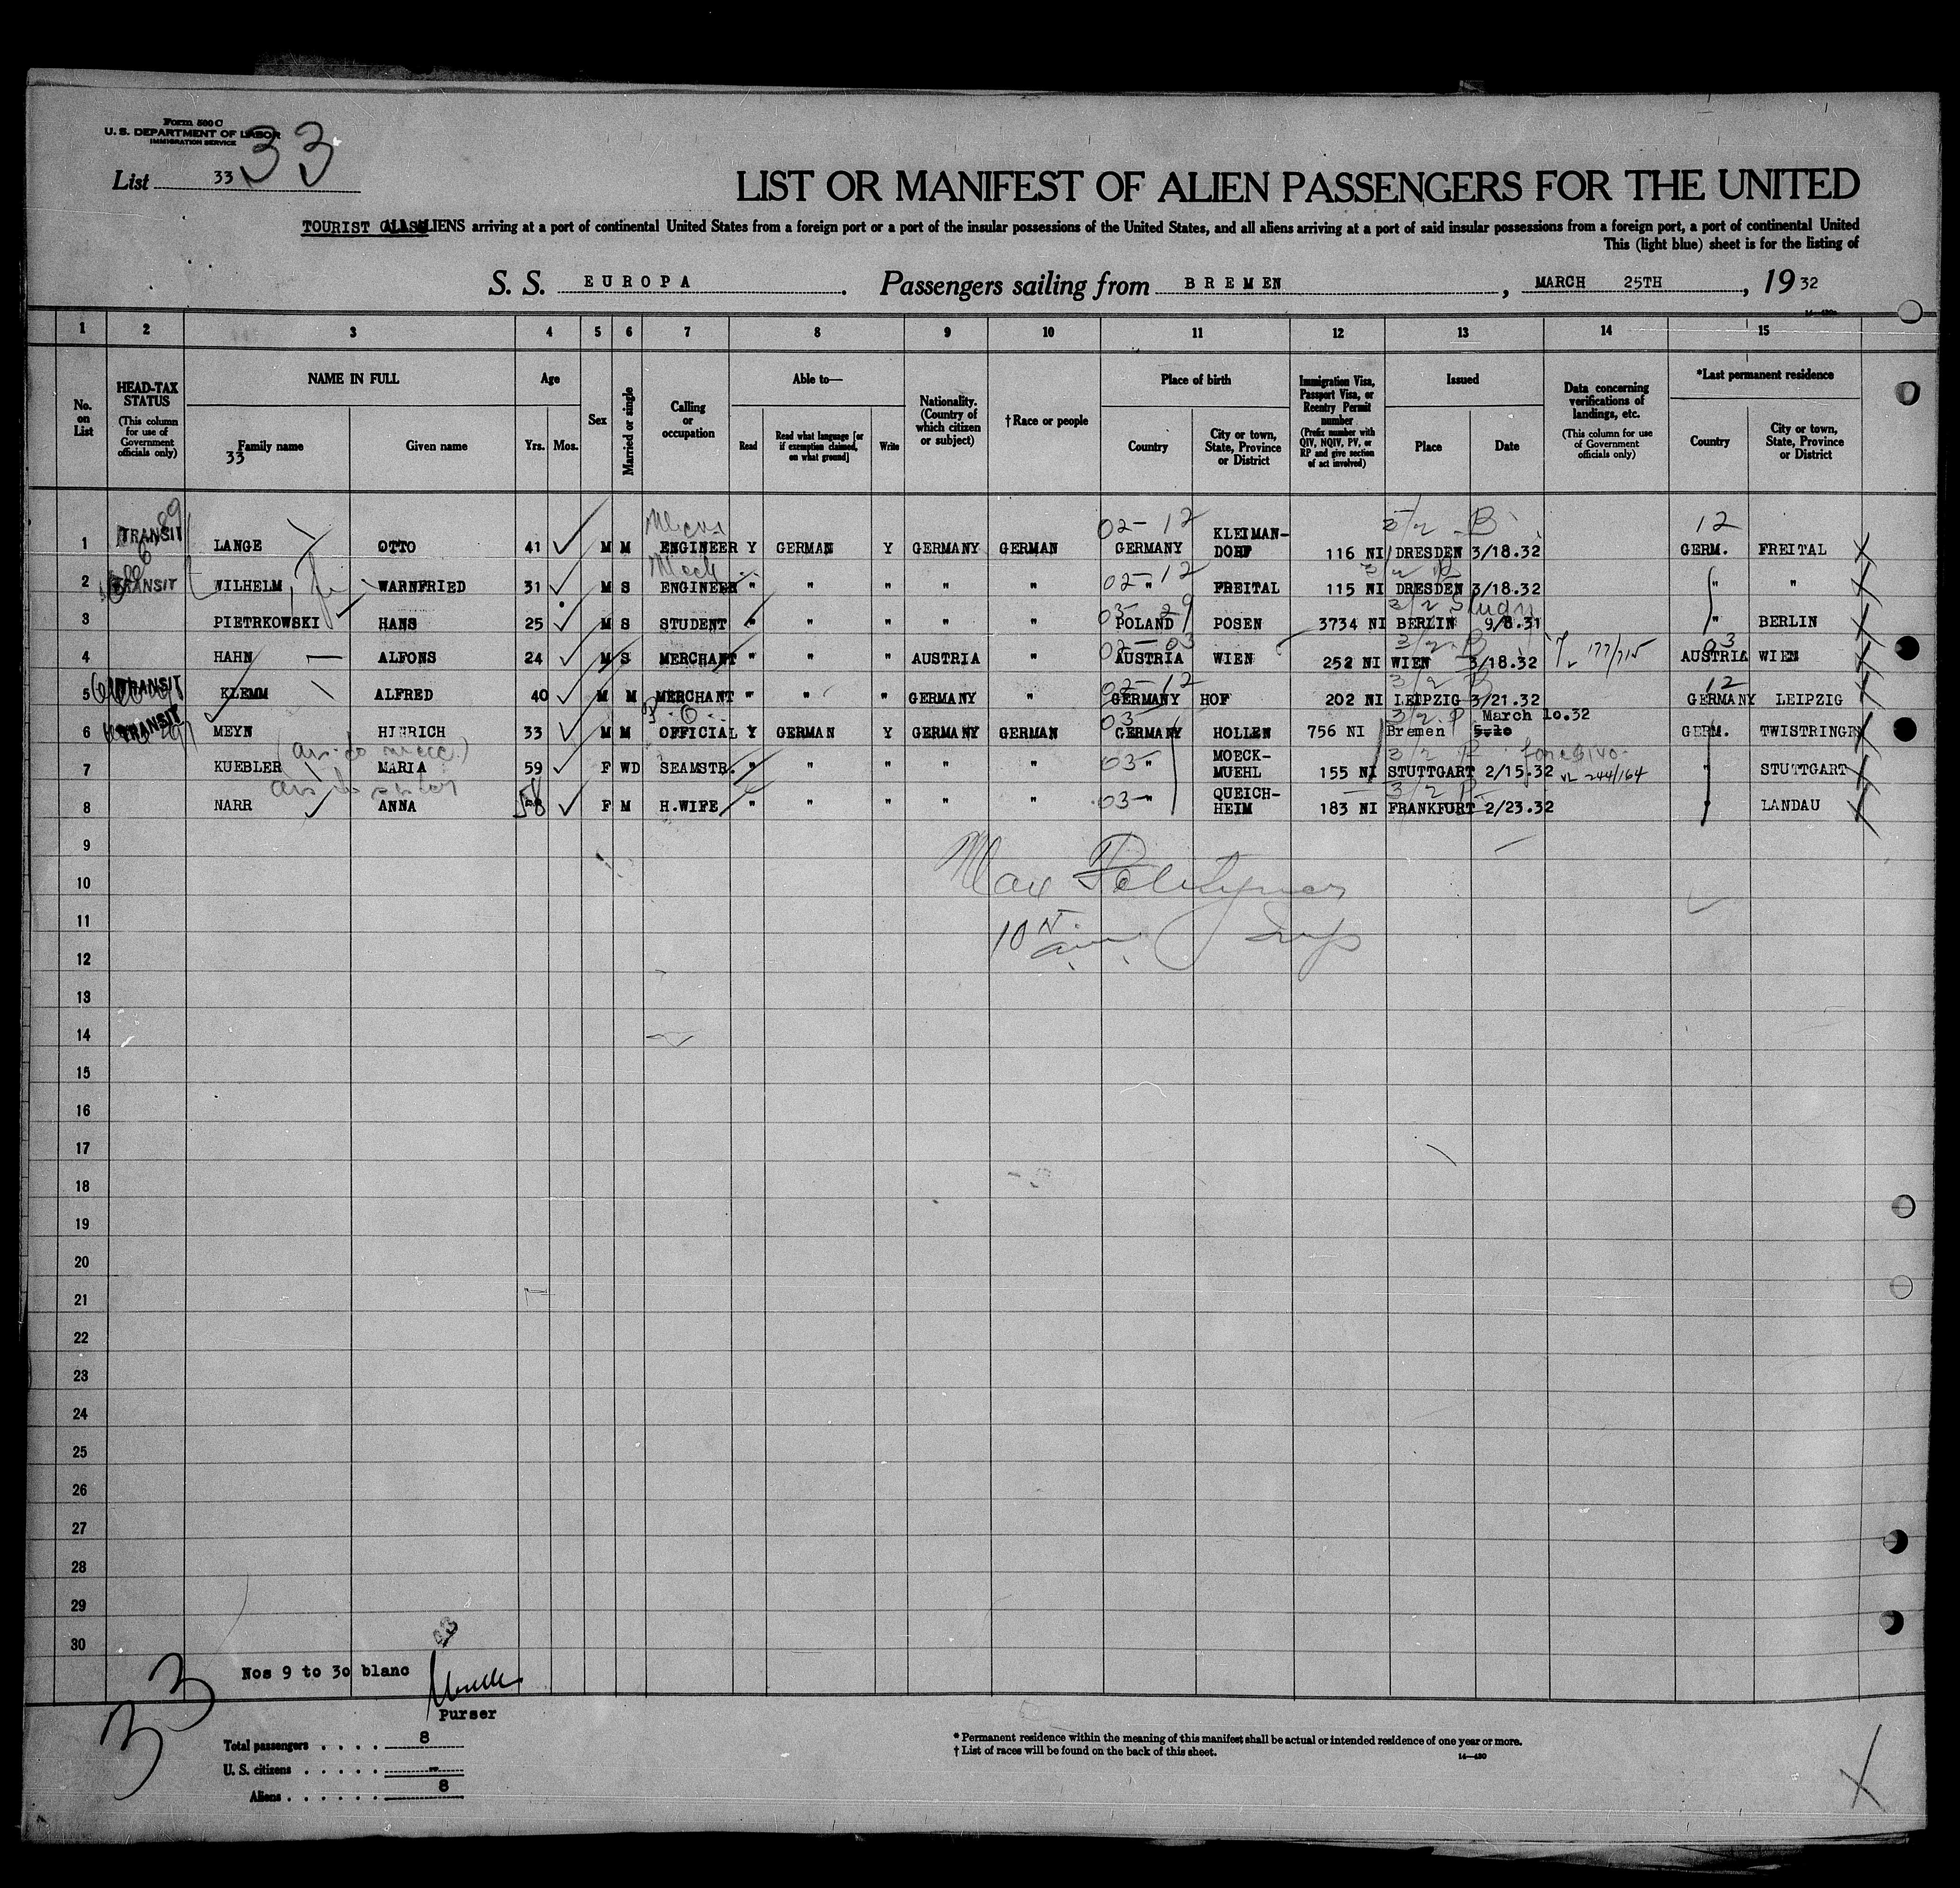 Form 500 C
U. S. DEPARTMENT OF LABOR
IMMIGRATION SERVICE
33
List 33
LIST OR MANIFEST OF ALIEN PASSENGERS FOR THE UNITED
TOURIST CLASS ALIENS arriving at a port of continental United States from a foreign port or a port of the insular possessions of the United States, and all aliens arriving at a port of said insular possessions from a foreign port, a port of continental United
This (light blue) sheet is for the listing of
S. S. EUROPA. Passengers sailing from BREMEN, MARCH 25TH, 1932
1 2 3 4 5 6 7 8 9 10 11 12 13 14 15
No. on List
HEAD-TAX STATUS (This column for use of Government officials only)
NAME IN FULL
Family name
33
Given name
Age
Yrs. Mos.
Sex
Married or single
Calling or occupation
Able to—
Read
Read what language [or if exemption claimed, on what ground]
Write
Nationality. (Country of which citizen or subject)
† Race or people
Place of birth
Country
City or town, State, Province or District
Immigration Visa, Passport Visa, or Reentry Permit number
(Prefix number with QIV, NQIV, PV, or RP and give section of act involved)
Issued
Place
Date
Data concerning verifications of landings, etc.
(This column for use of Government officials only)
*Last permanent residence
Country
City or town, State, Province or District
02-12 3/2 B 12
1 TRANSIT LANGE OTTO 41 M M ENGINEER Y GERMAN Y GERMANY GERMAN GERMANY KLEIMAN-DORF 116 NI DRESDEN 3/18.32 GERM. FREITAL
Mech 02-12 3/2 B
2 TRANSIT WILHELM WARNFRIED 31 M S ENGINEER " " " " " " FREITAL 115 NI DRESDEN 3/18.32 " "
03-29 3/2 Study
3 PIETRKOWSKI HANS 25 M S STUDENT " " " " " POLAND POSEN 3734 NI BERLIN 9/8.31 " BERLIN
02-03 3/2 B 177/715 03
4 HAHN ALFONS 24 M S MERCHANT " " " AUSTRIA " AUSTRIA WIEN 252 NI WIEN 3/18.32 AUSTRIA WIEN
02-12 3/2 B 12
5 TRANSIT KLEMM ALFRED 40 M M MERCHANT " " " GERMANY " GERMANY HOF 202 NI LEIPZIG 3/21.32 GERMANY LEIPZIG
P.O. 03 3/2 P March 10.32
6 TRANSIT MEYN HINRICH 33 M M OFFICIAL Y GERMAN Y GERMANY GERMAN GERMANY HOLLEN 756 NI Bremen GERM. TWISTRINGEN
03 3/2 P 244/164
7 KUEBLER MARIA 59 F WD SEAMSTR. " " " " " " MOECK-MUEHL 155 NI STUTTGART 2/15.32 " STUTTGART
03 3/2 P
8 NARR ANNA 58 F M H.WIFE " " " " " " QUEICH-HEIM 183 NI FRANKFURT 2/23.32 " LANDAU
9
10 Max
11 10
12
13
14
15
16
17
18
19
20
21
22
23
24
25
26
27
28
29
30
Nos 9 to 30 blanc
Purser
33
Total passengers . . . . 8
U. S. citizens . . . . . -
Aliens . . . . . . 8
* Permanent residence within the meaning of this manifest shall be actual or intended residence of one year or more.
† List of races will be found on the back of this sheet.
14—430